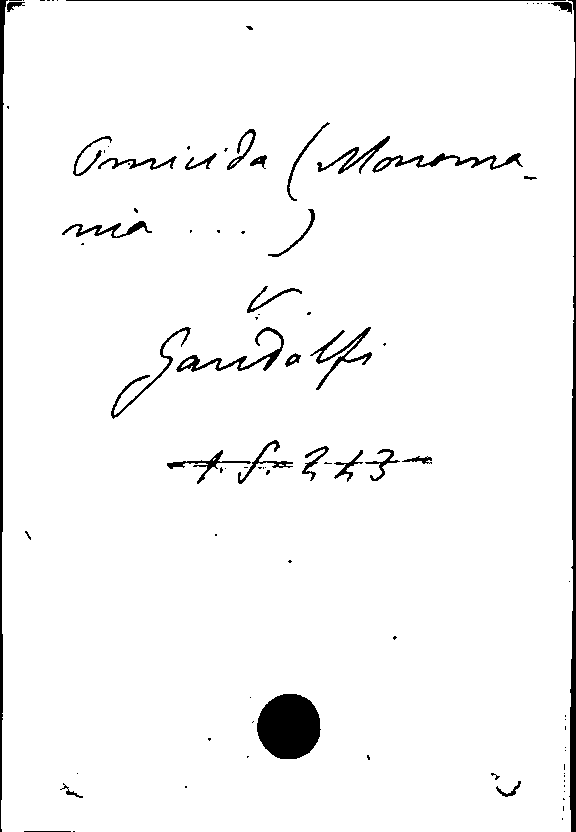 Omicida (Monoma-
nia ... )
v.
Gandolfi